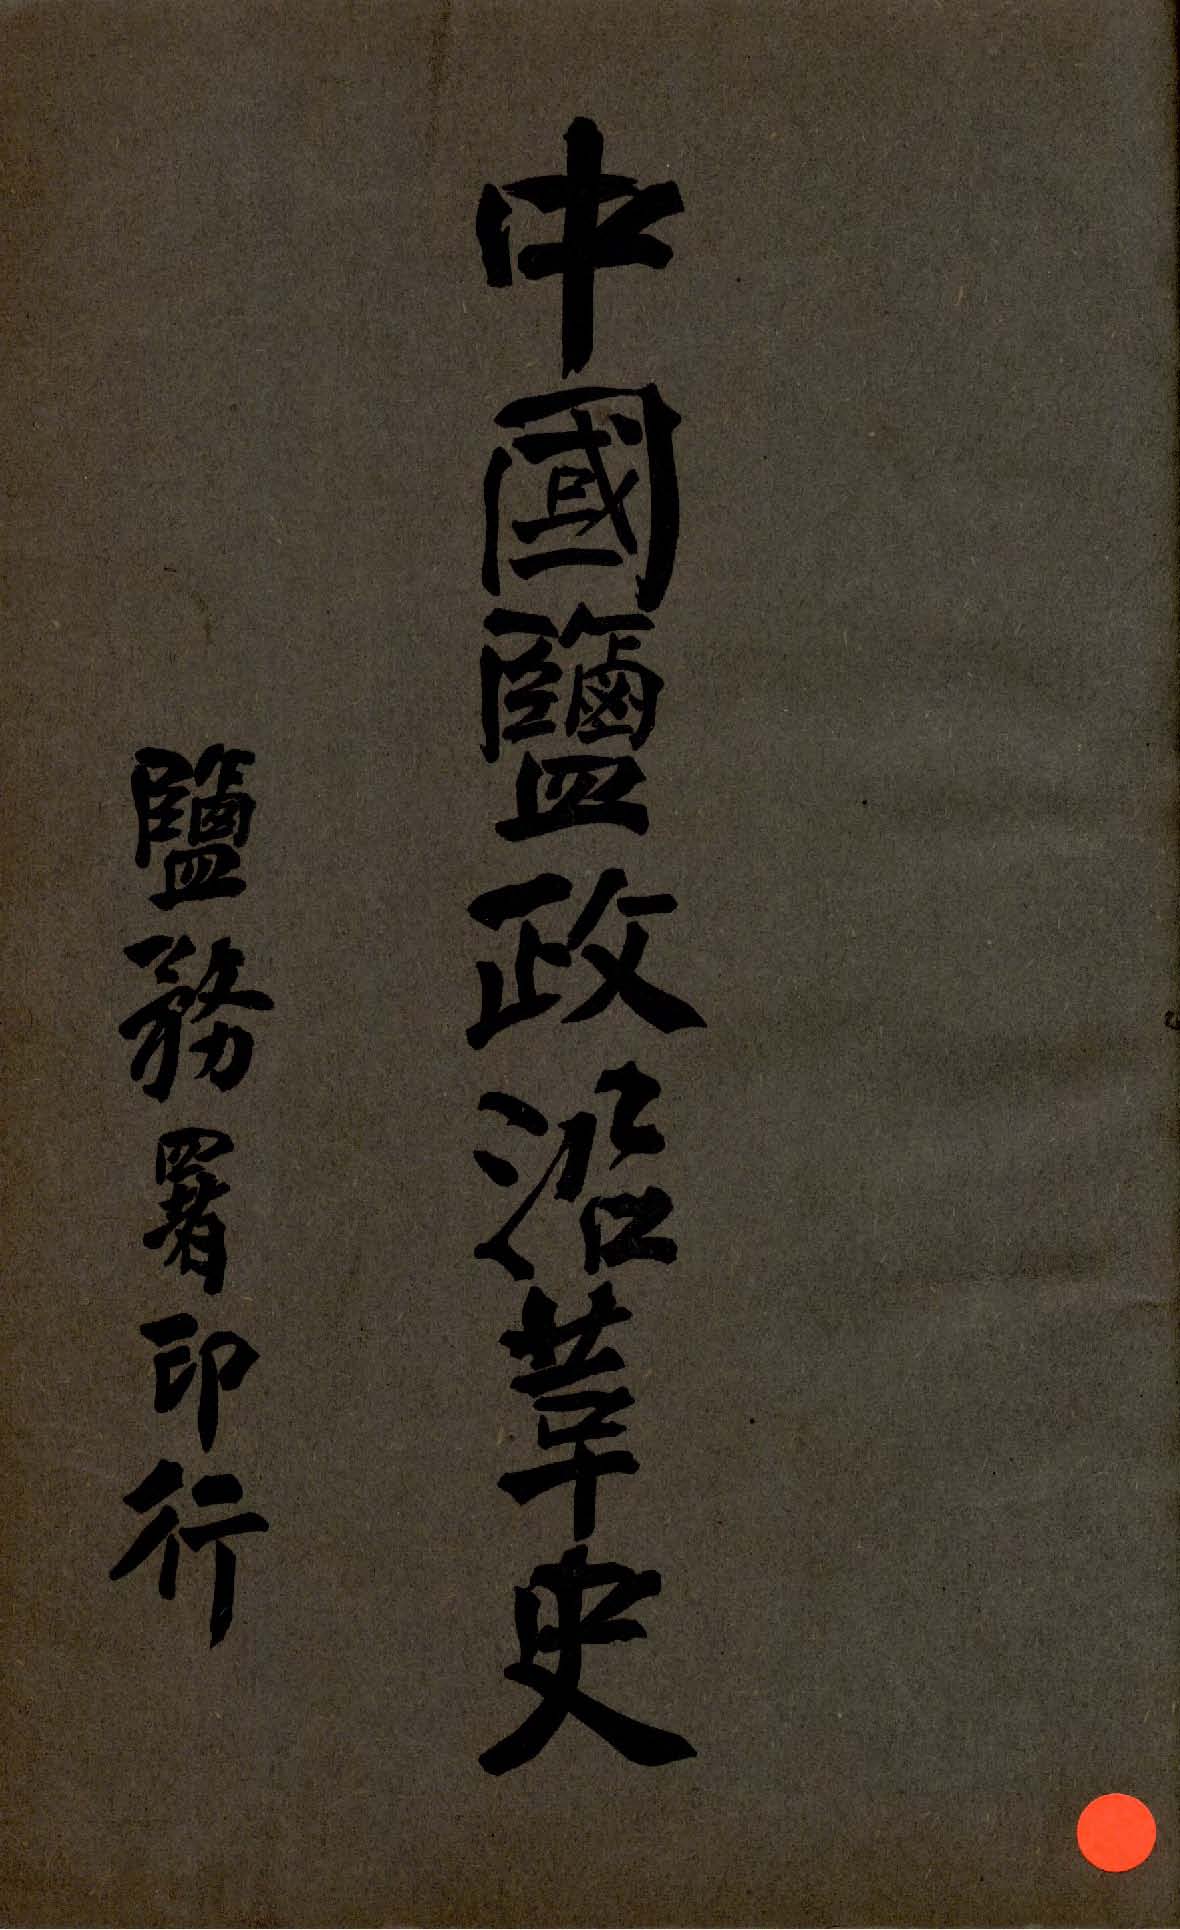 中國鹽政沿革史
鹽務署印行